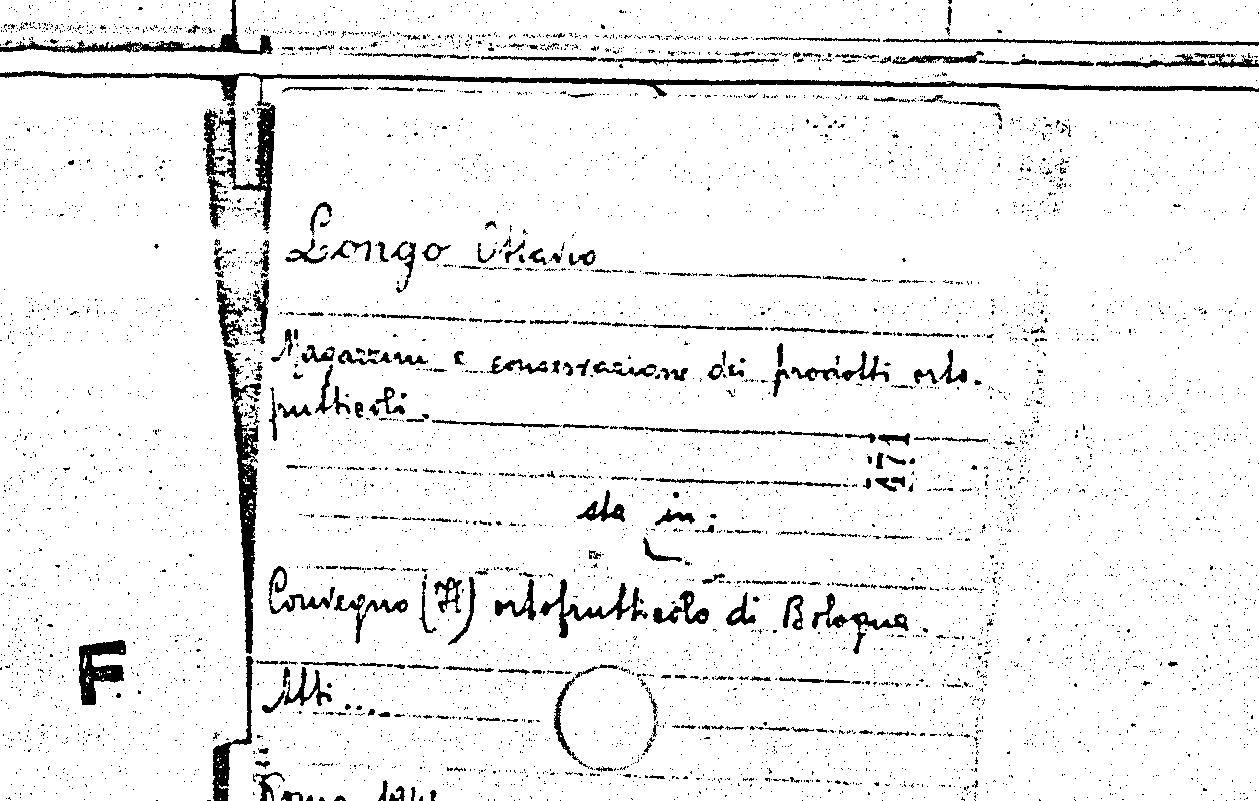 Longo Ottavio
Magazzini e conservazione dei prodotti orto-
frutticoli.
171
sta in:
Convegno (II) ortofrutticolo di Bologna.
Atti...
F
Roma